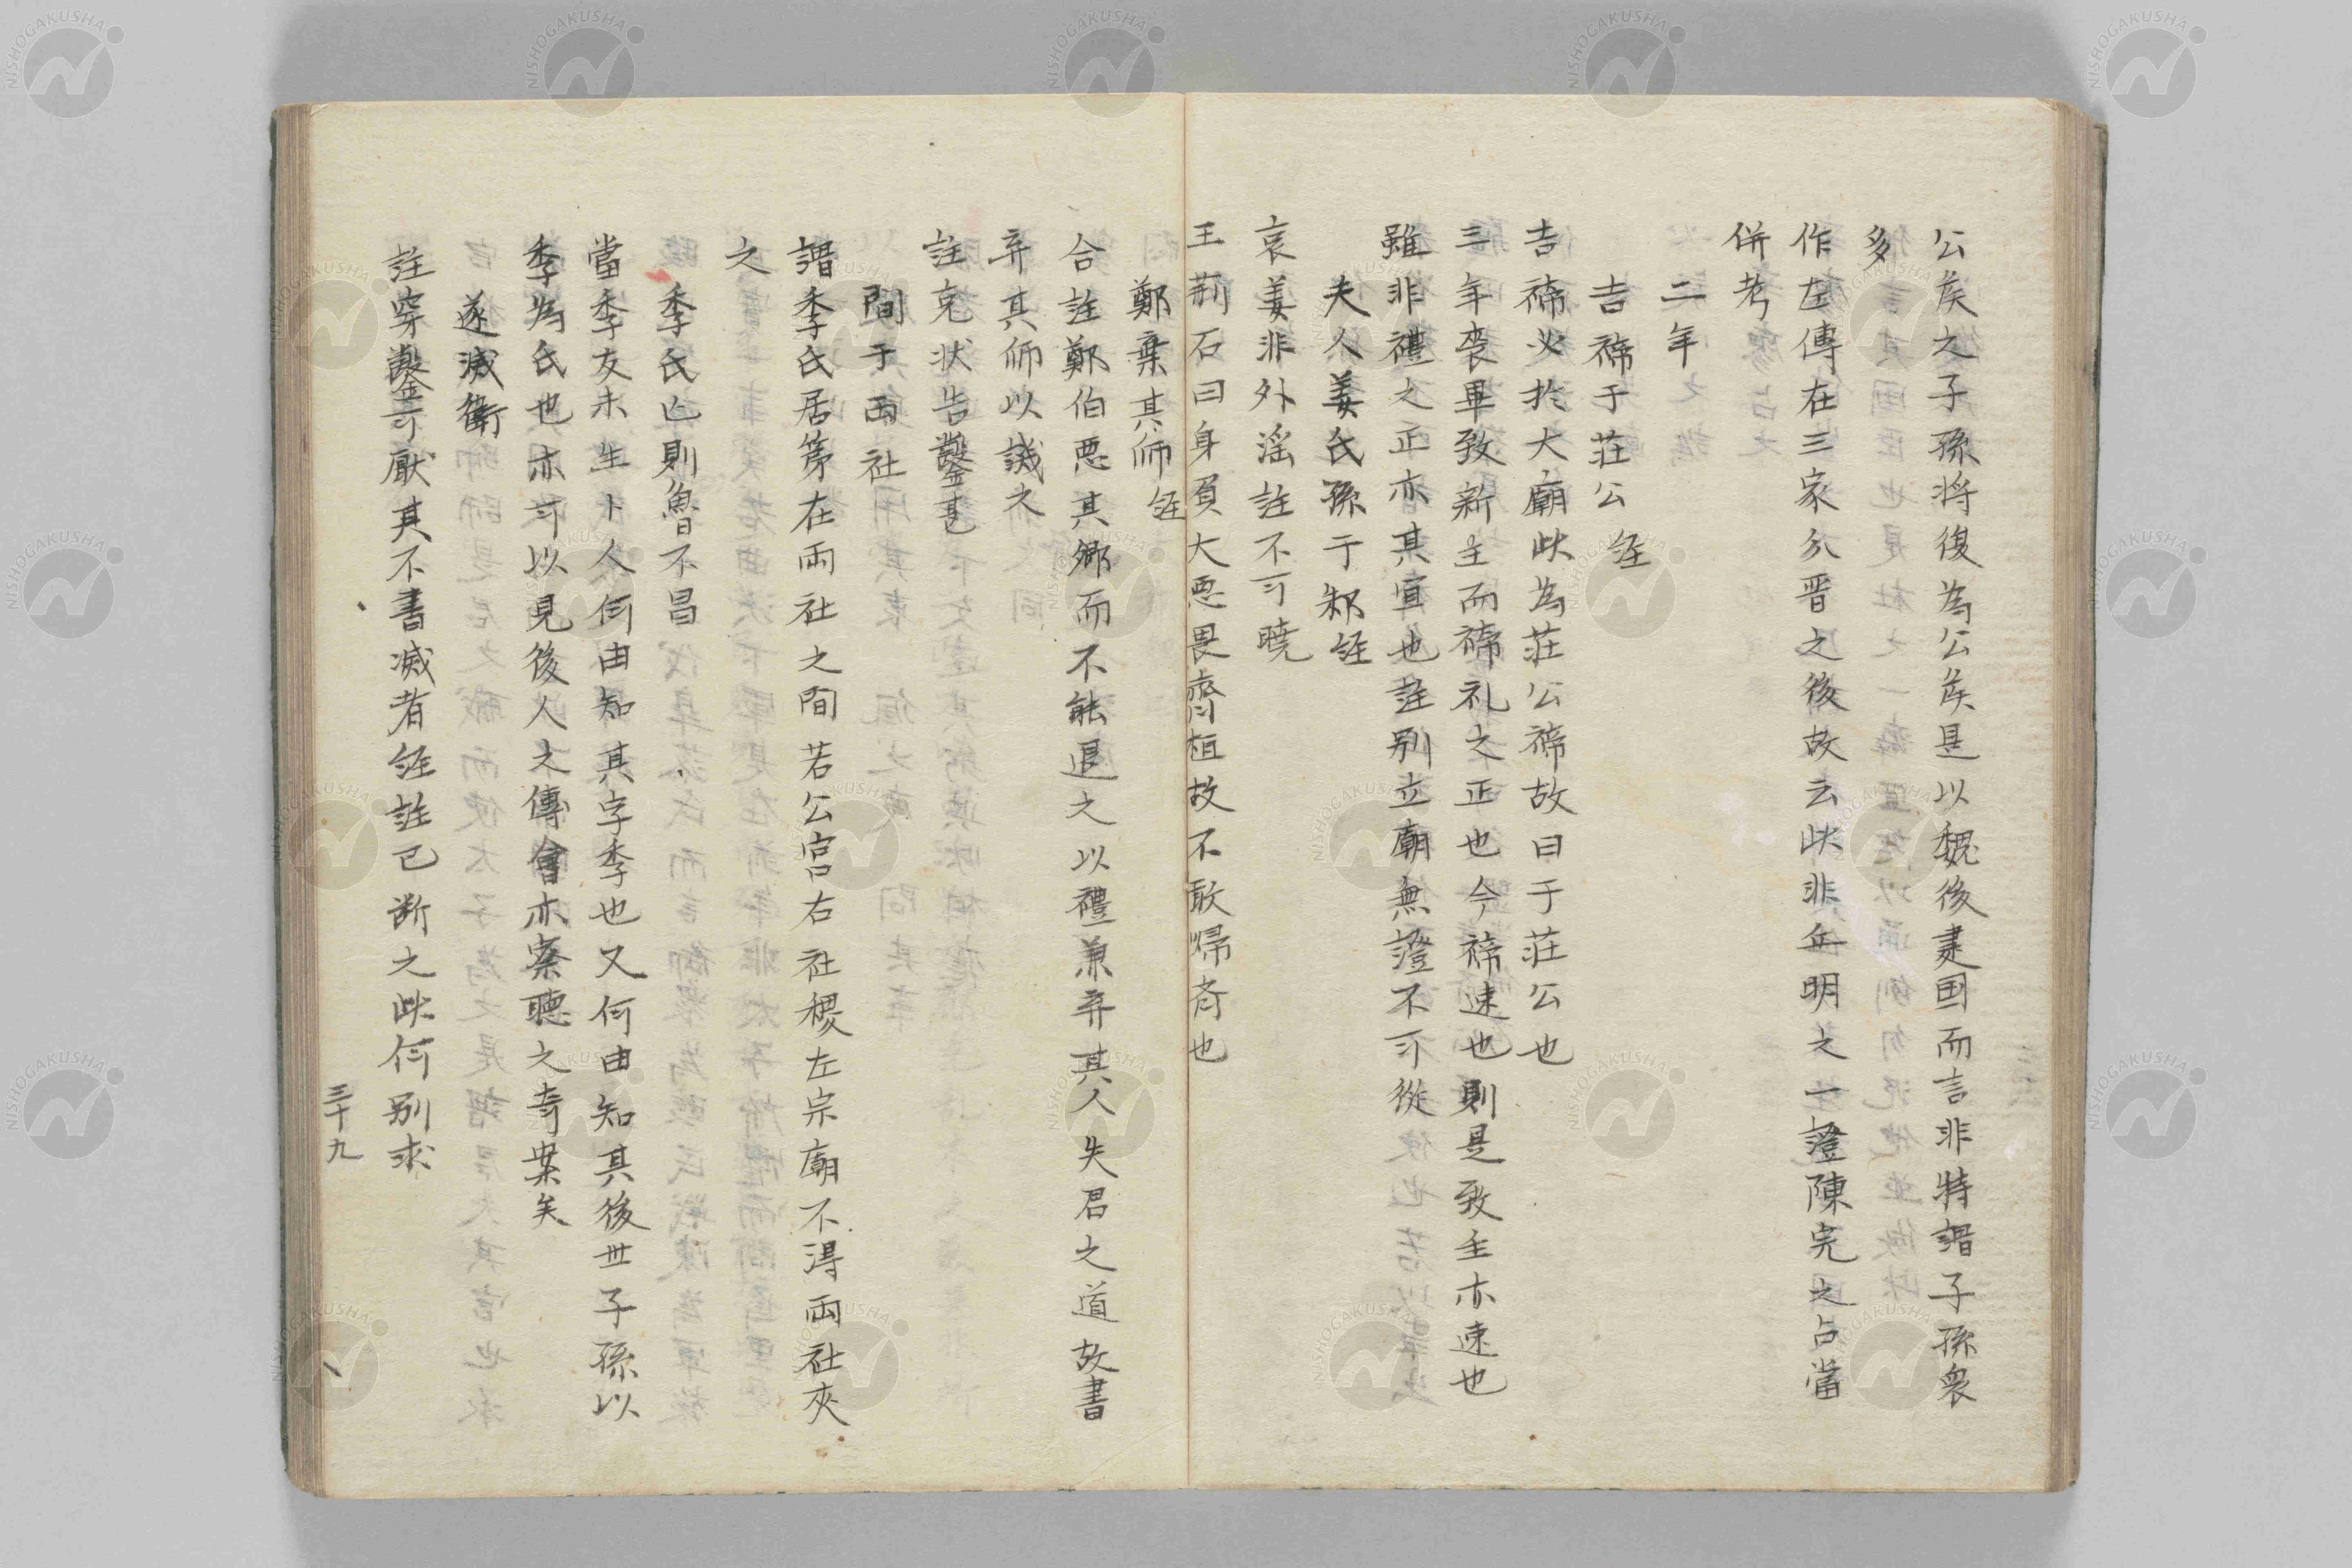 公矦之子孫將復為公矦是以魏後建国而言非特謂子孫衆
多
作左傳在三家分晋之後故云此非丘明之一證陳完之占當
併考
二年
吉禘于莊公 経
吉禘必於大廟此為莊公禘故曰于莊公也
三年喪畢致新主而禘礼之正也今禘速也則是致主亦速也
雖非禮之正亦其宜也註別立廟無證不可從
夫人姜氏孫于邾 経
哀姜非外淫註不可曉
王荊石曰身負大悪畏齊桓故不敢帰斉也
鄭棄其師 経
合註鄭伯悪其卿而不能退之以禮兼弃其人失君之道故書
弃其師以譏之
註克状告鑿甚
間于両社
謂季氏居第在両社之間若公宮右社稷左宗廟不得両社夾
之
季氏亡則魯不昌
當季友未生卜人何由知其字季也又何由知其後世子孫以
季為氏也亦可以見後人之傳會亦察聴之奇案矣
遂滅衛
註穿鑿可厭其不書滅者経註已断之此何別求
三十九
NISHOGAKUSHA